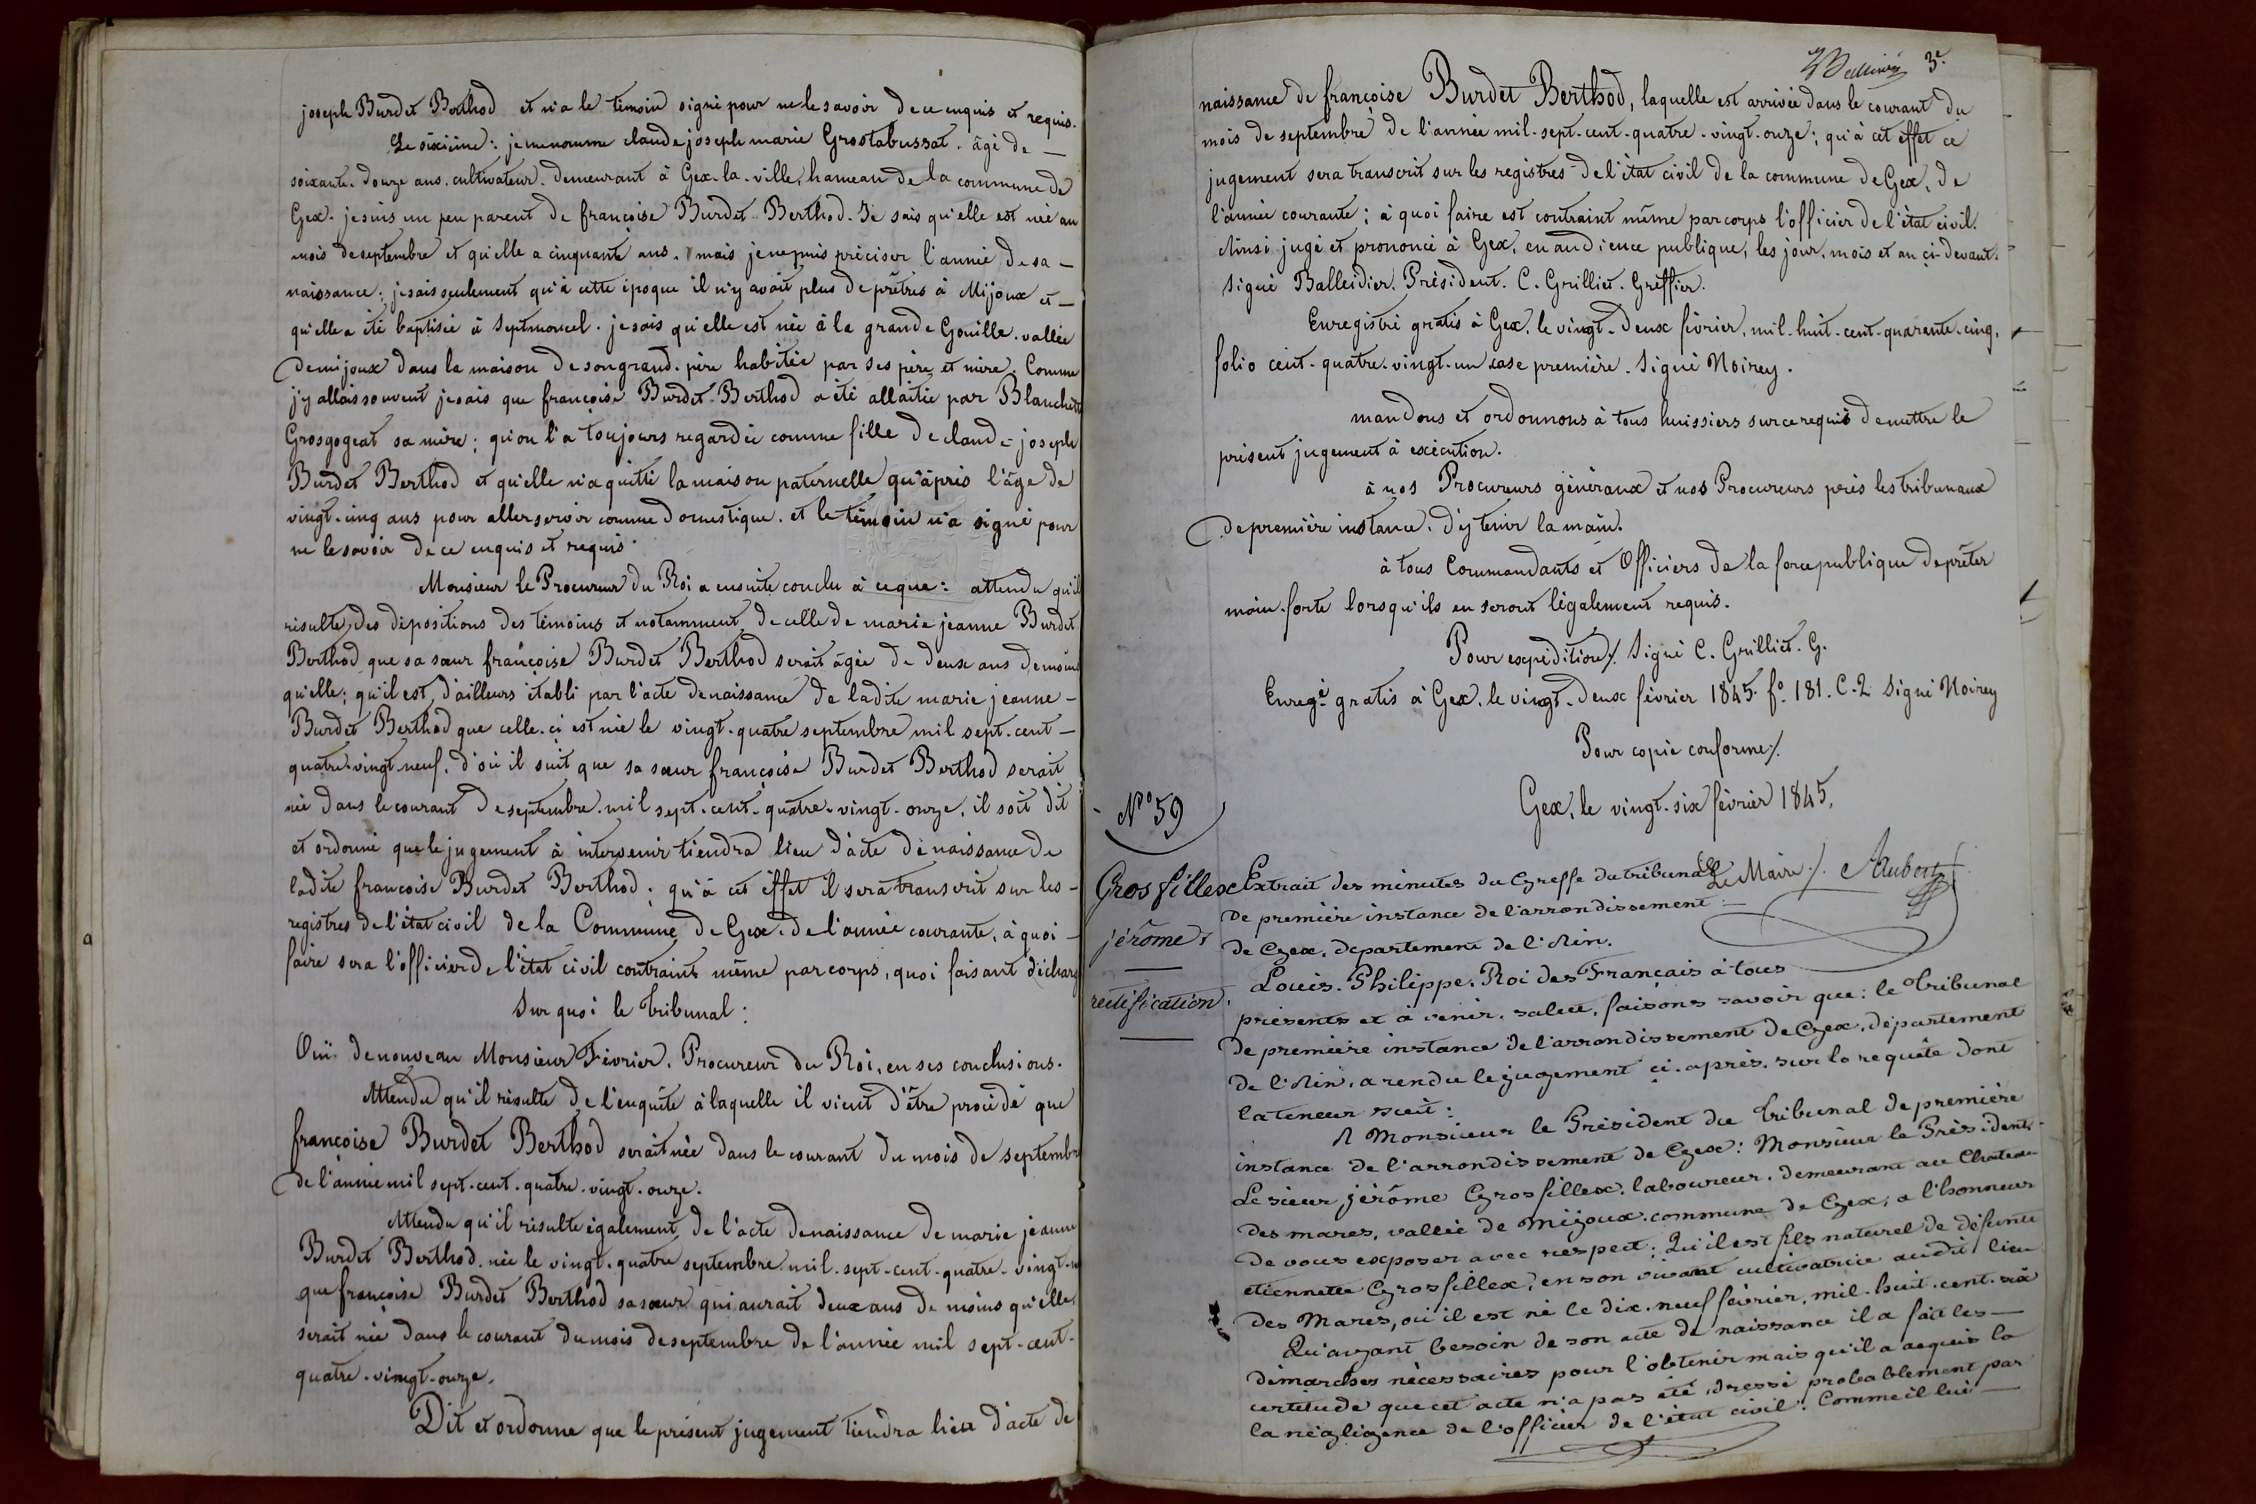 joseph Burdet Berthod et n'a le témoin signé pour ne le savoir de ce enquis et requis.
Le sixième : je me nomme claude joseph marie Grostabussat. âgé de —
soixante-douze ans. cultivateur. demeurant à Gex-la-ville, hameau de la commune de
Gex. je suis un peu parent de françoise Burdet Berthod. Je sais qu'elle est née au
mois de septembre et qu'elle a cinquante ans. mais je ne puis préciser l'année de sa —
naissance : je sais seulement qu'à cette époque il n'y avait plus de prêtres à Mijoux et —
qu'elle a été baptisée à Septmoncel. je sais qu'elle est née à la grande Gouille. vallée
de mijoux dans la maison de son grand-père habitée par ses père et mère. Comme
j'y allais souvent je sais que françoise Burdet-Berthod a été allaitée par Blanchette
Grosgogeat sa mère ; qu'on l'a toujours regardée comme fille de claude-joseph
Burdet Berthod et qu'elle n'a quitté la maison paternelle qu'après l'âge de
vingt-cinq ans pour aller servir comme domestique. et le témoin n'a signé pour
ne le savoir de ce enquis et requis.
Monsieur le Procureur du Roi a ensuite conclu à ceque : attendu qu'il
résulte des dépositions des témoins et notamment de celle de marie jeanne Burdet
Berthod que sa sœur françoise Burdet Berthod serait âgée de deux ans de moins
qu'elle ; qu'il est d'ailleurs établi par l'acte de naissance de ladite marie jeanne —
Burdet Berthod que celle-ci est née le vingt-quatre septembre mil sept-cent —
quatre-vingt-neuf. d'où il suit que sa sœur françoise Burdet Berthod serait
née dans le courant de septembre mil sept-cent-quatre-vingt-onze. il soit dit
et ordonné que le jugement à intervenir tiendra lieu d'acte de naissance de
ladite françoise Burdet Berthod ; qu'à cet effet il sera transcrit sur les —
registres de l'état civil de la Commune de Gex. de l'année courante, à quoi —
faire sera l'officier de l'état civil contraint même par corps, quoi faisant décharg
Sur quoi le Tribunal :
Ouï de nouveau Monsieur Février. Procureur du Roi, en ses conclusions.
Attendu qu'il résulte de l'enquête à laquelle il vient d'être procédé que
françoise Burdet Berthod serait née dans le courant du mois de septembre
de l'année mil sept-cent-quatre-vingt-onze.
Attendu qu'il résulte également de l'acte de naissance de marie jeanne
Burdet Berthod. née le vingt-quatre septembre mil-sept-cent-quatre-vingt-
que françoise Burdet Berthod sa sœur qui aurait deux ans de moins qu'elle
serait née dans le courant du mois de septembre de l'année mil sept-cent-
quatre-vingt-onze.
Dit et ordonne que le présent jugement tiendra lieu d'acte de
3e.
naissance de françoise Burdet Berthod, laquelle est arrivée dans le courant du
mois de septembre de l'année mil-sept-cent-quatre-vingt-onze ; qu'à cet effet ce
jugement sera transcrit sur les registres de l'état civil de la commune de Gex, de
l'année courante ; à quoi faire est contraint même par corps l'officier de l'état civil.
Ainsi jugé et prononcé à Gex, en audience publique, les jour, mois et an ci-devant.
Signé Balleidier. Président. C. Grilliet. Greffier.
Enregistré gratis à Gex, le vingt-deux février, mil-huit-cent-quarante-cinq,
folio cent-quatre-vingt-un case première. Signé Noirey.
mandons et ordonnons à tous huissiers sur ce requis de mettre le
présent jugement à exécution.
à nos Procureurs généraux et nos Procureurs près les tribunaux
de première instance. d'y tenir la main.
à tous Commandants et Officiers de la force publique de prêter
main-forte lorsqu'ils en seront légalement requis.
Pour expédition/. Signé C. Grilliet. G.
Enregé gratis à Gex, le vingt-deux février 1845. fo. 181. C.2 Signé Noirey
Pour copie conforme/.
Gex, le vingt-six février 1845.
Le Maire/. Aubert
No 59
Gros fillex
jérôme.
rectification.
Extrait des minutes du Greffe du tribunal
de première instance de l'arrondissement —
de Gex, département de l'Ain.
Louis-Philippe, Roi des Français à tous
présents et à venir. salut, faisons savoir que : le Tribunal
de première instance de l'arrondissement de Gex, département
de l'Ain, a rendu le jugement ci-après. sur la requête dont
la teneur suit :
A Monsieur le Président du Tribunal de première
instance de l'arrondissement de Gex : Monsieur le Président.
Le sieur jérôme Grosfillex, laboureur. demeurant au Chateau
des mares, vallée de mijoux. commune de Gex, a l'honneur
de vous exposer avec respect : Qu'il est fils naturel de défunte
etiennette Grosfillex, en son vivant cultivatrice audit lieu
des Mares, où il est né le dix-neuf février, mil-huit-cent-six
Qu'ayant besoin de son acte de naissance il a fait les —
démarches nécessaires pour l'obtenir mais qu'il a acquis la
certitude que cet acte n'a pas été dressé probablement par
la négligence de l'officier de l'état civil. Comme il lui —